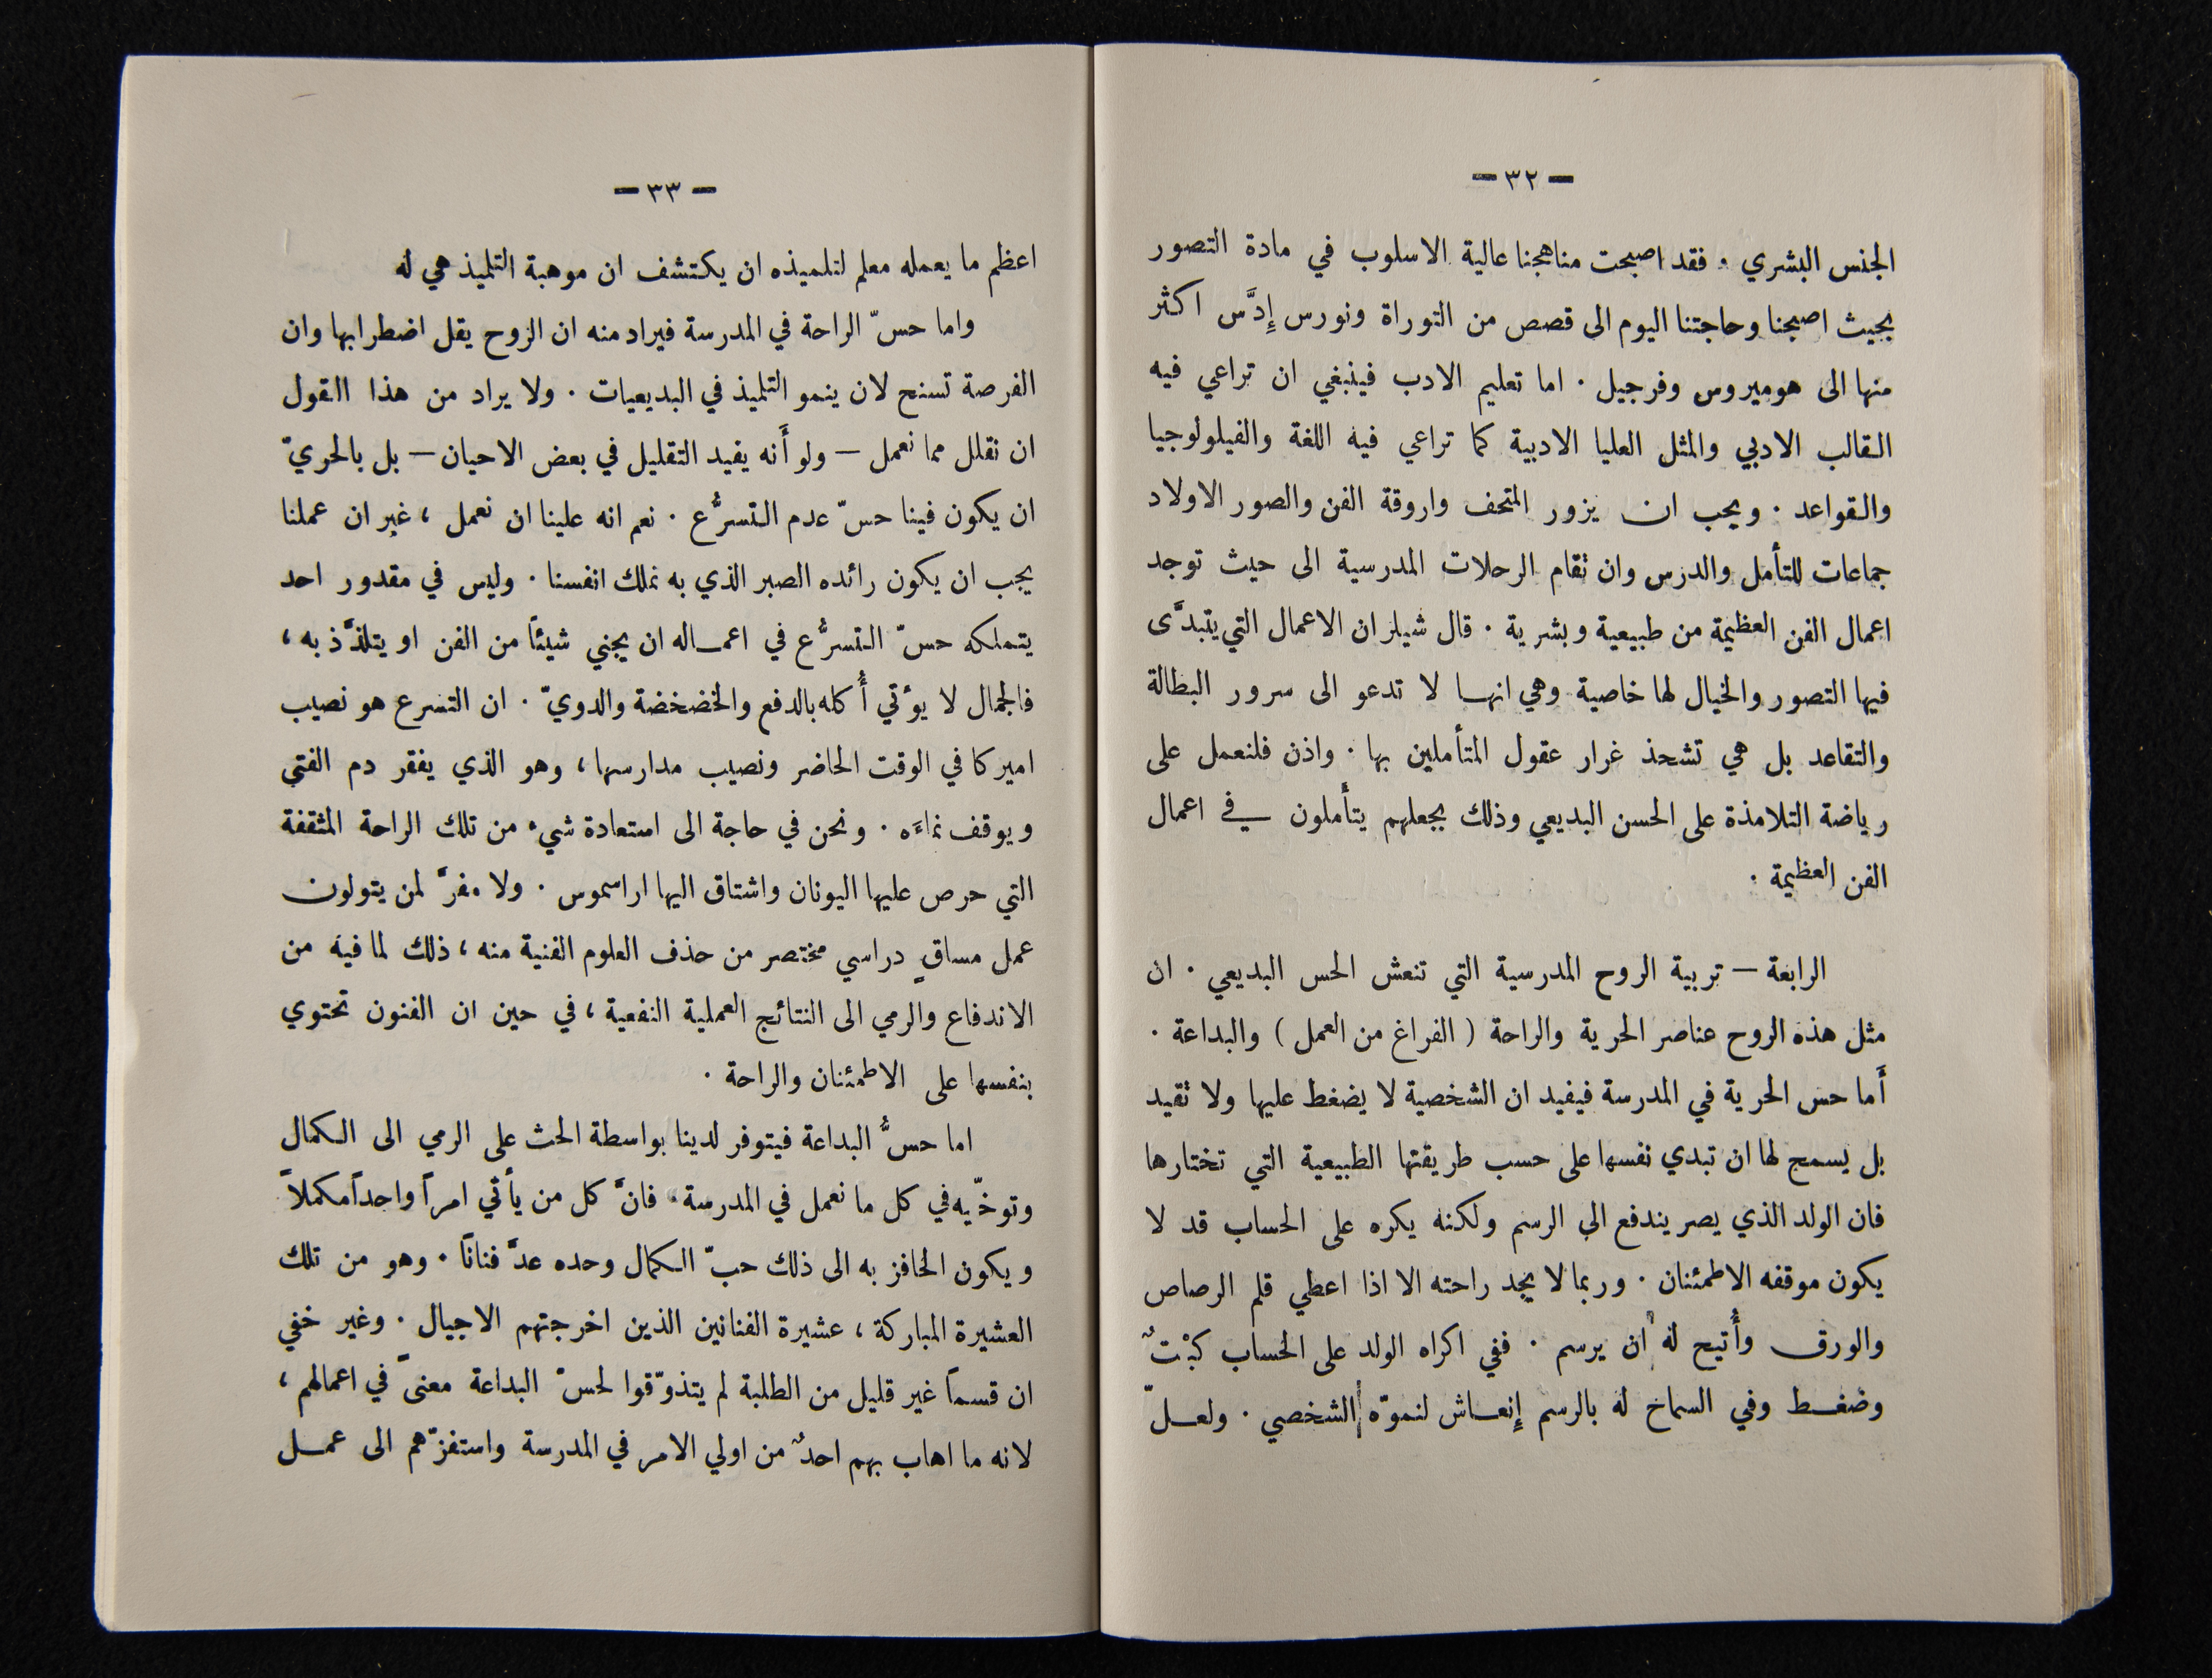 — ٣٢ —
الجنس البشري . فقد اصبحت مناهجنا عالية الاسلوب في مادة التصور
بحيث اصبحنا وحاجتنا اليوم الى قصص من التوراة ونورس إدَّس اكثر
منها الى هوميروس وفرجيل . اما تعليم الادب فينبغي ان تراعي فيه
القالب الادبي والمثل العليا الادبية كما تراعي فيه اللغة والفيلولوجيا
والقواعد . ويجب ان يزور المتحف واروقة الفن والصور الاولاد
جماعات للتأمل والدرس وان تقام الرحلات المدرسية الى حيث توجد
اعمال الفن العظيمة من طبيعية وبشرية . قال شيلر ان الاعمال التي يتبدَّى
فيها التصور والخيال لها خاصية وهي انها لا تدعو الى سرور البطالة
والتقاعد بل هي تشحذ غرار عقول المتأملين بها . واذن فلنعمل على
رياضة التلامذة على الحسن البديعي وذلك بجعلهم يتأملون في اعمال
الفن العظيمة .
الرابعة — تربية الروح المدرسية التي تنعش الحس البديعي . ان
مثل هذه الروح عناصر الحرية والراحة ( الفراغ من العمل ) والبداعة .
أَما حس الحرية في المدرسة فيفيد ان الشخصية لا يضغط عليها ولا تقيد
بل يسمح لها ان تبدي نفسها على حسب طريقتها الطبيعية التي تختارها
فان الولد الذي يصر يندفع الى الرسم ولكنه يكره على الحساب قد لا
يكون موقفه الاطمئنان . وربما لا يجد راحته الا اذا اعطي قلم الرصاص
والورق وأُتيح له ان يرسم . ففي اكراه الولد على الحساب كبْتٌ
وضغط وفي السماح له بالرسم إنعاش لنموّه الشخصي . ولعلّ
— ٣٣ —
اعظم ما يعمله معلم لتلميذه ان يكتشف ان موهبة التلميذ هي له
واما حسّ الراحة في المدرسة فيراد منه ان الروح يقل اضطرابها وان
الفرصة تسنح لان ينمو التلميذ في البديعيات . ولا يراد من هذا القول
ان نقلل مما نعمل — ولو أَنه يفيد التقليل في بعض الاحيان — بل بالحريّ
ان يكون فينا حسّ عدم التسرُّع . نعم انه علينا ان نعمل ، غير ان عملنا
يجب ان يكون رائده الصبر الذي به نملك انفسنا . وليس في مقدور احد
يتملكه حسّ التسرُّع في اعماله ان يجني شيئاً من الفن او يتلذَّذ به ،
فالجمال لا يؤتي أُكله بالدفع والخضخضة والدويّ . ان التسرع هو نصيب
اميركا في الوقت الحاضر ونصيب مدارسها ، وهو الذي يفقر دم الفتى
ويوقف نماءَه . ونحن في حاجة الى استعادة شيء من تلك الراحة المثقفة
التي حرص عليها اليونان واشتاق اليها اراسموس . ولا مفرَّ لمن يتولون
عمل مساقٍ دراسي مختصر من حذف العلوم الفنية منه ، ذلك لما فيه من
الاندفاع والرمي الى النتائج العملية النفعية ، في حين ان الفنون تحتوي
بنفسها على الاطمئنان والراحة .
اما حسُّ البداعة فيتوفر لدينا بواسطة الحث على الرمي الى الكمال
وتوخّيه في كل ما نعمل في المدرسة . فانَّ كل من يأتي امراً واحداً مكملاً
ويكون الحافز به الى ذلك حبّ الكمال وحده عدَّ فناناً . وهو من تلك
العشيرة المباركة ، عشيرة الفنانين الذين اخرجتهم الاجيال . وغير خفي
ان قسماً غير قليل من الطلبة لم يتذوّقوا لحسّ البداعة معنىً في اعمالهم ،
لانه ما اهاب بهم احدٌ من اولي الامر في المدرسة واستفزّهم الى عمل